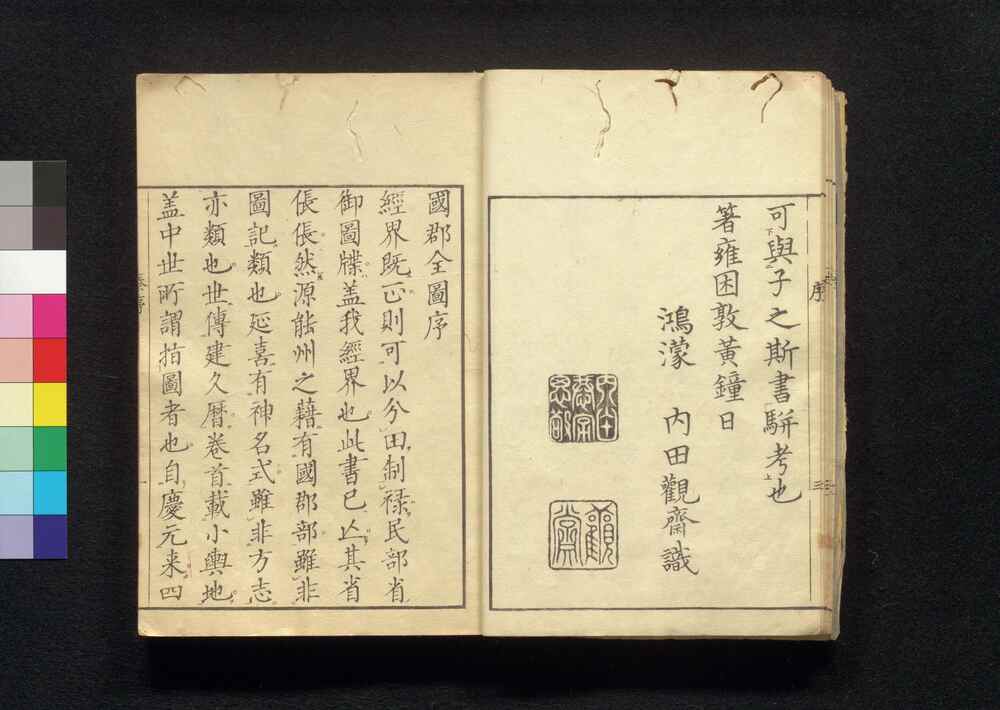 可與子之斯書駢考也
著雍困敦黃鐘日
鴻濛 內田觀齋識
序
三
國郡全圖序
經界既正則可以分田制祿民部省
御圖牒蓋我經界也此書已亾其省
倀倀然源能州之藉有國郡部雖非
圖記類也延喜有神名式雖非方志
亦類也世傳建久曆卷首載小輿地
蓋中世所謂指圖者也自慶元来四